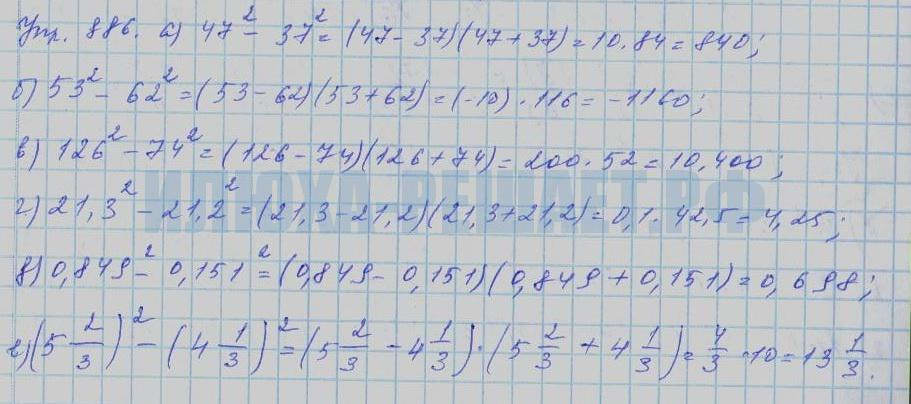 Упр. 886. а) 47² - 37² = (47 - 37)(47 + 37) = 10 · 84 = 840;
б) 53² - 62² = (53 - 62)(53 + 62) = (-10) · 116 = -1160;
в) 126² - 74² = (126 - 74)(126 + 74) = 200 · 52 = 10,400;
ИЛЮХА РЕШАЕТ.РФ
г) 21,3² - 21,2² = (21,3 - 21,2)(21,3 + 21,2) = 0,1 · 42,5 = 4,25;
д) 0,849² - 0,151² = (0,849 - 0,151)(0,849 + 0,151) = 0,698;
е) (5 2/3)² - (4 1/3)² = (5 2/3 - 4 1/3) · (5 2/3 + 4 1/3) = 4/3 · 10 = 13 1/3.